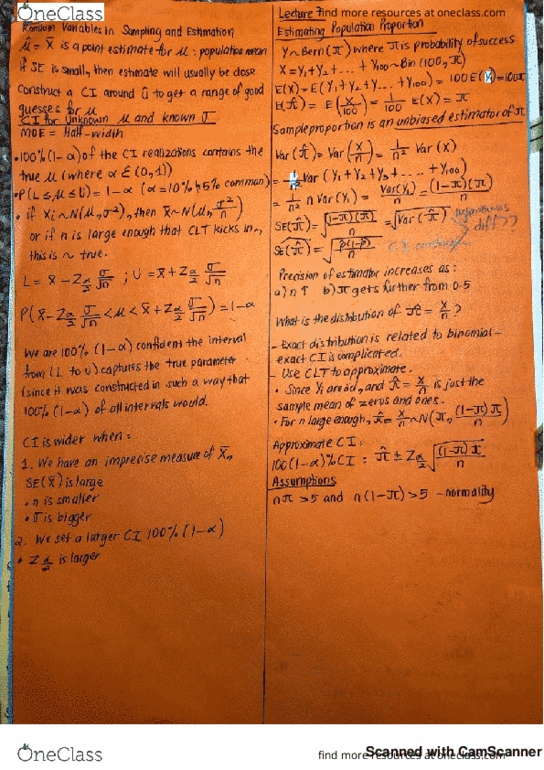 OneClass
Random Variables in Sampling and Estimation
μ̂ = x̄ is a point estimate for μ: population mean
if SE is small, then estimate will usually be close
Construct a CI around û to get a range of good
guesses for μ
CI for Unknown μ and known σ
MOE = Half-width
• 100%(1-α) of the CI realizations contains the
true μ (where α ∈ (0,1))
• P(L ≤ μ ≤ U) = 1-α (α = 10% 5% common)
• if Xi ~ N(μ, σ²), then x̄ ~ N(μ, σ²/n)
or if n is large enough that CLT kicks in,
this is ~ true.
L = x̄ - Zα/2 σ/√n ; U = x̄ + Zα/2 σ/√n
P(x̄ - Zα/2 σ/√n < μ < x̄ + Zα/2 σ/√n) = 1-α
We are 100% (1-α) confident the interval
from (L to U) captures the true parameter
(since it was constructed in such a way that
100% (1-α) of all intervals would.
CI is wider when:
1. We have an imprecise measure of x̄,
SE(x̄) is large
• n is smaller
• σ is bigger
2. We set a larger CI 100% (1-α)
• Zα/2 is larger
Lecture 7
find more resources at oneclass.com
Estimating Population Proportion
Y ~ Bern(π) where π is probability of success
X = Y1 + Y2 + ... + Y100 ~ Bin (100, π)
E(X) = E(Y1 + Y2 + ... + Y100) = 100 E(Y) = 100π
E(π̂) = E(X/100) = 1/100 E(X) = π
Sample proportion is an unbiased estimator of π
Var(π̂) = Var(X/n) = 1/n² Var(X)
= 1/n² Var(Y1 + Y2 + Y3 + ... + Y100)
= 1/n² n Var(Y1) = Var(Y1)/n = (1-π)(π)/n
SE(π̂) = √((1-π)(π)/n) = √Var(π̂)
diff??
SE(π̂) = √(p(1-p)/n)
Precision of estimator increases as:
a) n↑ b) π gets further from 0.5
What is the distribution of π̂ = X/n?
- Exact distribution is related to binomial -
exact CI is complicated.
- Use CLT to approximate.
• Since Yi are iid, and π̂ = X/n is just the
sample mean of zeros and ones.
• For n large enough, π̂ = X/n ~ N(π, (1-π)π/n)
Approximate CI:
100(1-α)% CI : π̂ ± Zα/2 √((1-π)π/n)
Assumptions
nπ > 5 and n(1-π) > 5 - normality
OneClass
find more resources at oneclass.com
Scanned with CamScanner